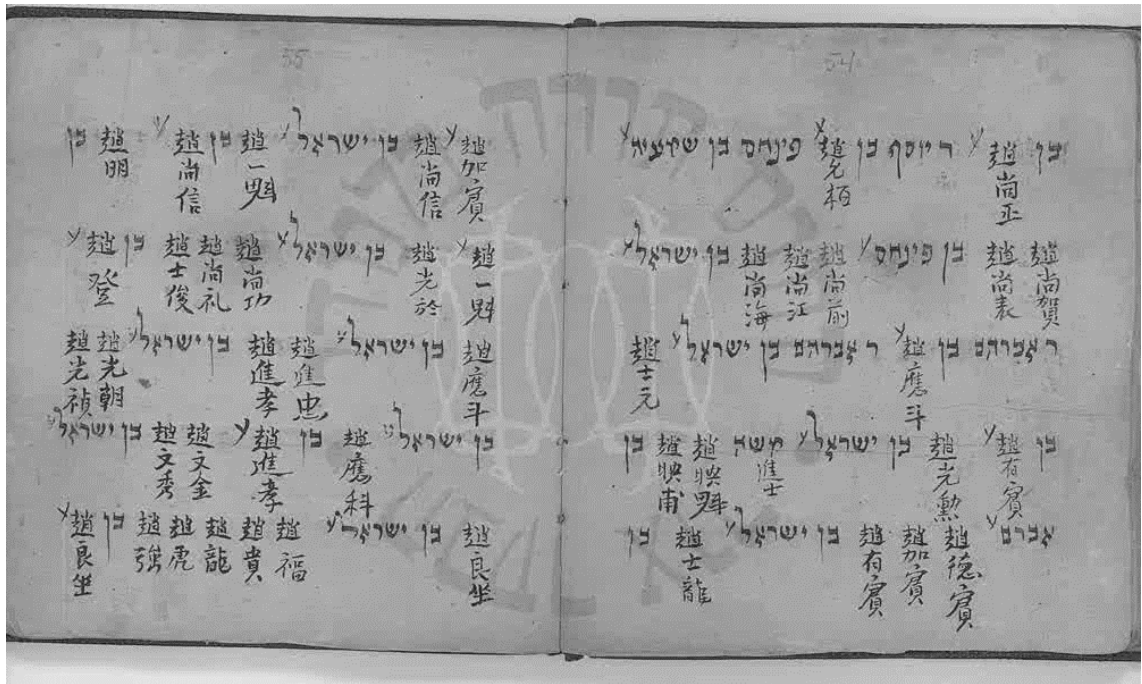 54
בן 趙尚正 ע ר יוסף בן 趙光栢 ע פינחס בן שמעיה ע
趙尚賀 趙尚表 בן פינחס ע 趙尚前 趙尚江 趙尚海 בן ישראל ע
ר אברהם בן 趙應斗 ע ר אברהם בן ישראל ע 趙士元
בן 趙有賓 ע 趙光勲 בן ישראל ע משה 進士 趙映魁 趙映甫 בן
אברם ע 趙德賓 趙加賓 趙有賓 בן ישראל ע 趙士龍 בן
55
趙加賓 ע 趙尚信 בן ישראל ע 趙一魁 בן 趙尚信 ע 趙明 בן
趙一魁 ע 趙光於 בן ישראל ע 趙尚功 趙尚礼 趙士俊 בן 趙登 ע
趙應斗 בן ישראל ע 趙進忠 趙進孝 בן ישראל ע 趙光朝 趙光禎
בן ישראל ע 趙應科 בן 趙進孝 ע 趙文金 趙文秀 בן ישראל ע
趙良坐 בן ישראל ע 趙福 趙貴 趙龍 趙虎 趙強 בן 趙良坐 ע